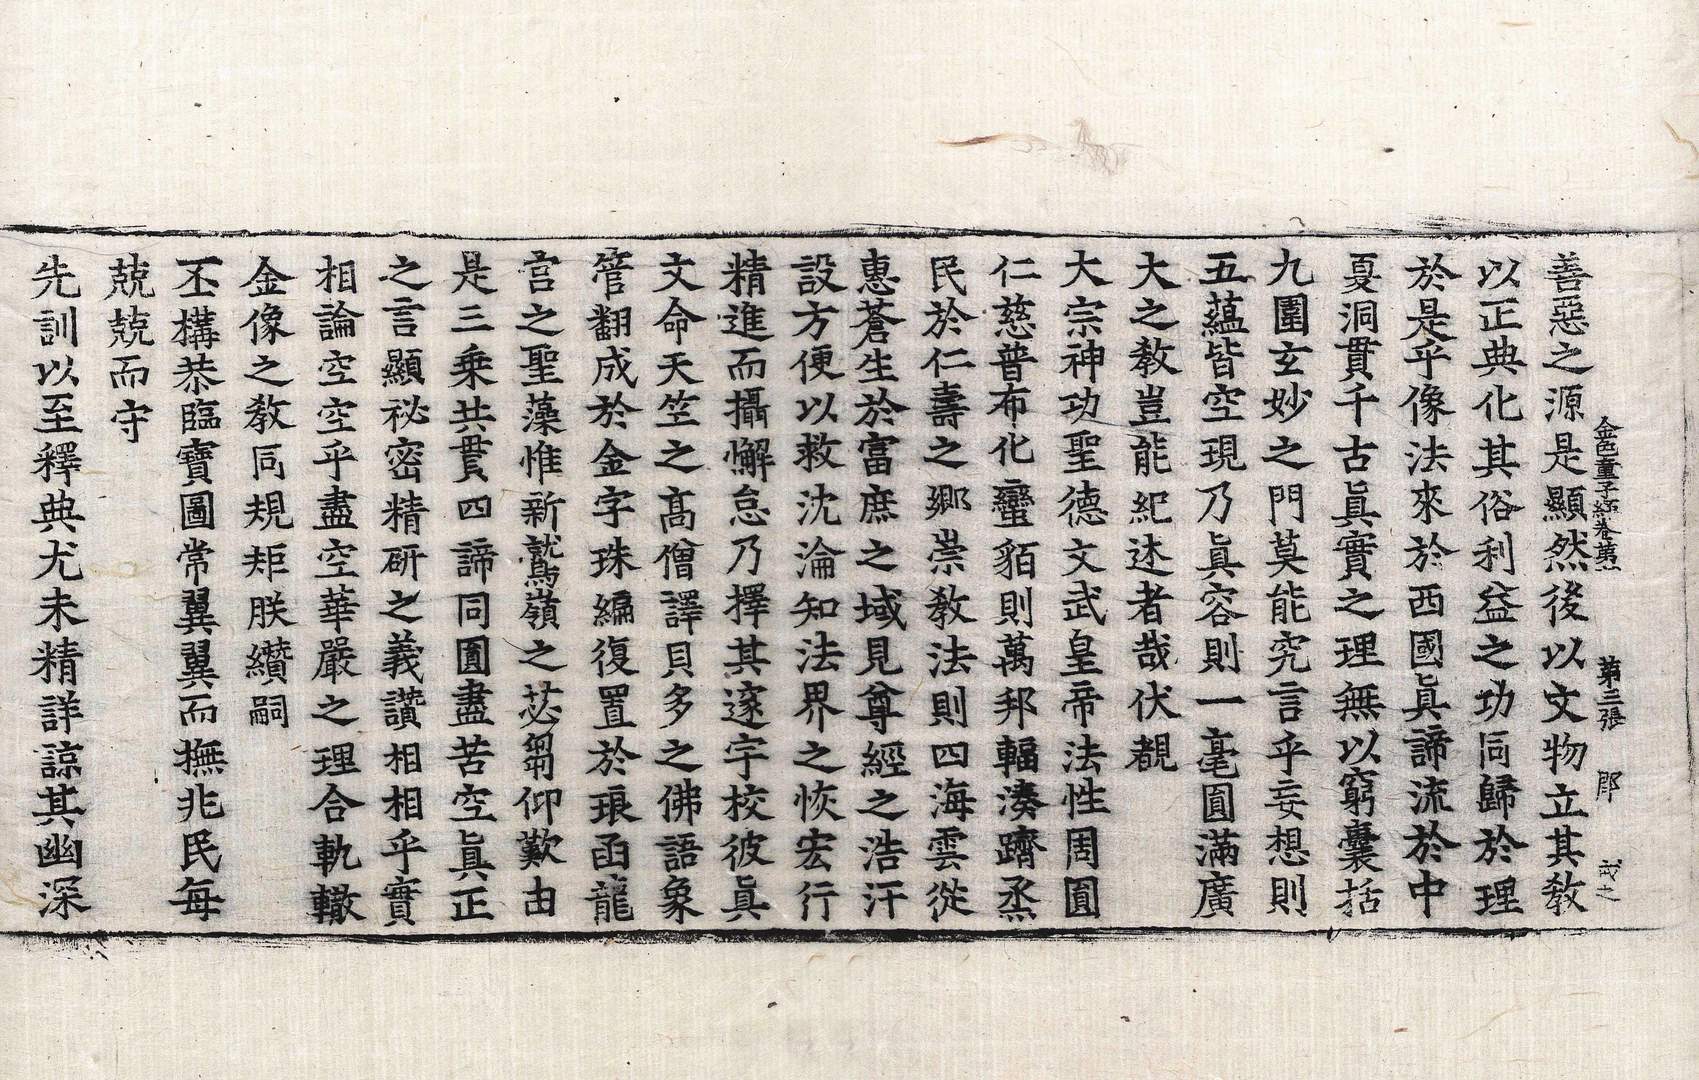 金色童子經卷第一 第三張 郎 戒之
善惡之源是顯然後以文物立其教
以正典化其俗利益之功同歸於理
於是乎像法來於西國眞諦流於中
夏洞貫千古眞實之理無以窮囊括
九圍玄妙之門莫能究言乎妄想則
五蘊皆空現乃眞容則一毫圓滿廣
大之教豈能紀述者哉伏覩
大宗神功聖德文武皇帝法性周圓
仁慈普布化蠻貊則萬邦輻湊躋烝
民於仁壽之鄉崇教法則四海雲從
惠蒼生於富庶之域見尊經之浩汗
設方便以救沈淪知法界之恢宏行
精進而攝懈怠乃擇其邃宇校彼眞
文命天竺之高僧譯貝多之佛語象
管翻成於金字珠編復置於琅函龍
宮之聖藻惟新鷲嶺之苾芻仰歎由
是三乘共貫四諦同圓盡苦空眞正
之言顯祕密精研之義讚相相乎實
相論空空乎盡空華嚴之理合軌轍
金像之教同規矩朕纘嗣
丕構恭臨寶圖常翼翼而撫兆民每
兢兢而守
先訓以至釋典尤未精詳諒其幽深